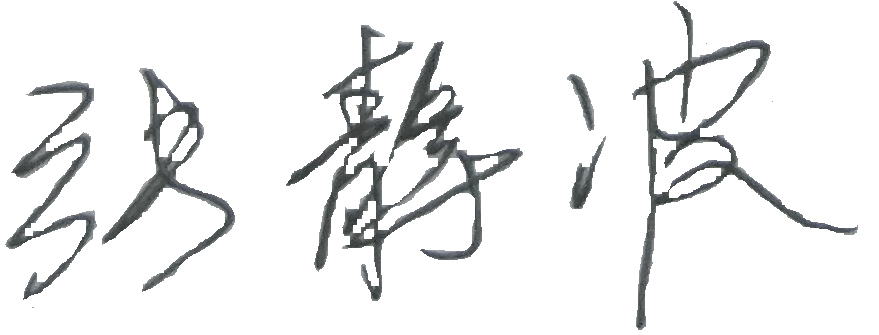 张静波